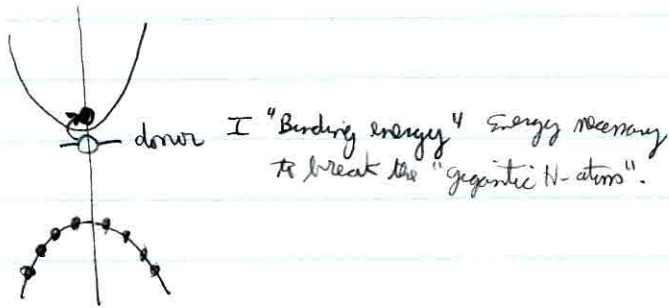 donor I "Binding energy" Energy necessary
to break the "gigantic H-atom".